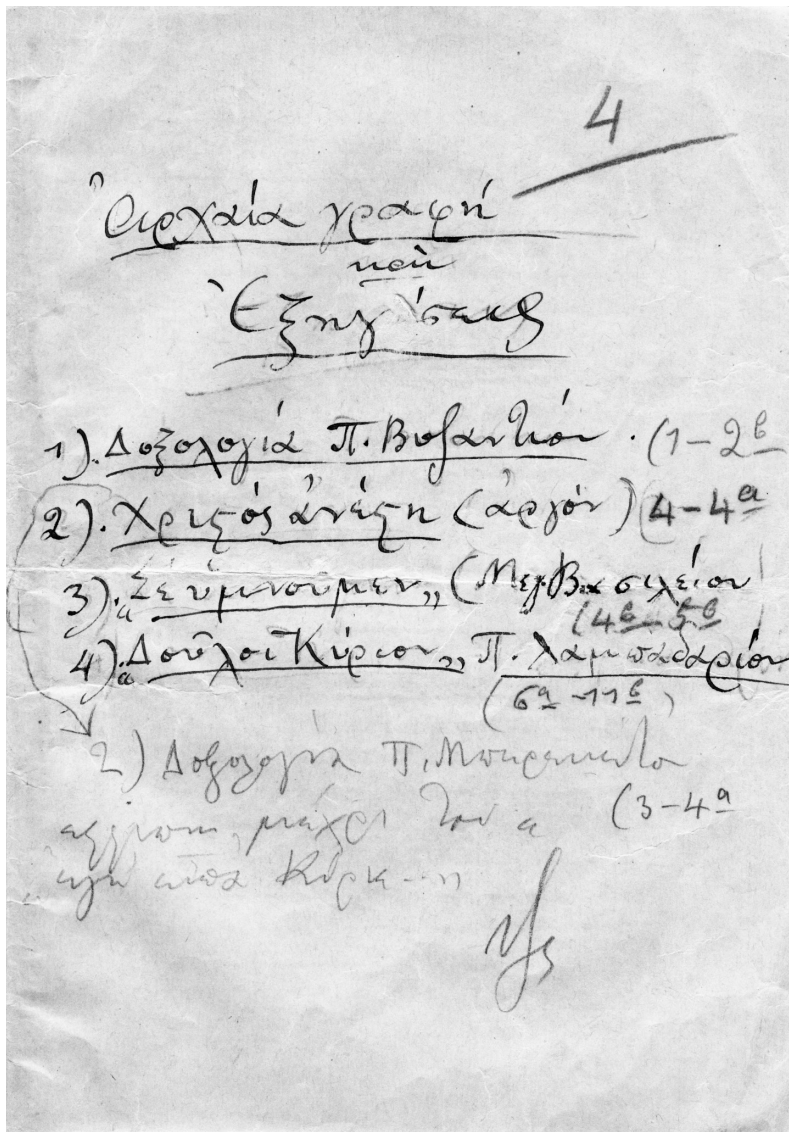 4
Ἀρχαία γραφή
καὶ
Ἐξηγήσεις
1). Δοξολογία Π. Βυζαντίου. (1-2β
2). Χριστός ἀνέστη (ἀργόν) (4-4α
3). "Σὲ ὑμνοῦμεν„ (Μεγ. Βασιλείου
(4β-5β
4). "Δοῦλοι Κύριον„ Π. Λαμπαδαρίου
(6α-11β)
2) Δοξολογία Π. Μπερεκέτου
μέχρι τοῦ "
(3-4α
ἐγὼ εἶπα Κύριε...„